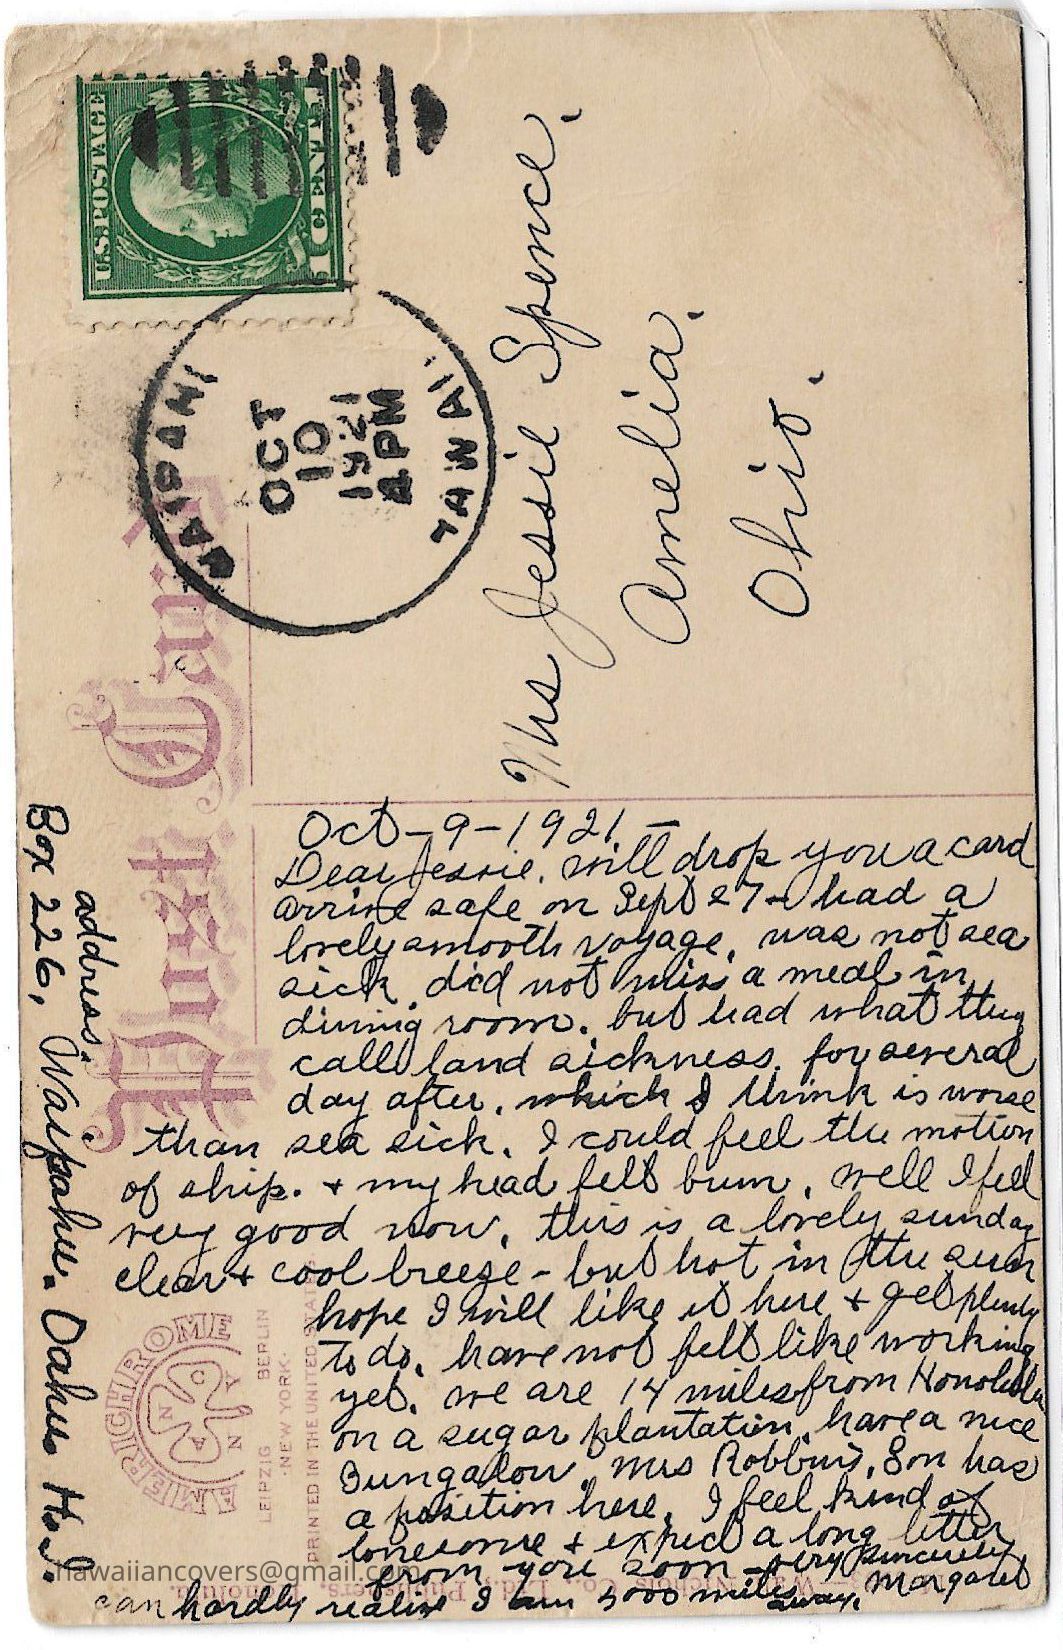 U.S. POSTAGE
1 CENT 1
WAIPAHU
OCT
10
1921
4 PM
HAWAII
Post Card
Mrs Jessie Spence.
Amelia.
Ohio.
Oct-9-1921-
Dear Jessie. Will drop you a card
arrive safe on Sept 27- had a
lovely smooth voyage, was not sea
sick, did not miss a meal in
dining room. but had what they
call land sickness, for several
day after, which I think is worse
than sea sick. I could feel the motion
of ship. + my head felt bum, well I feel
very good now, this is a lovely sunday
clear + cool breeze - but hot in the sun
hope I will like it here + get plenty
to do, have not felt like working
yet. we are 14 miles from Honolulu
on a sugar plantation, have a nice
Bungalow, Mrs Robbins, Son has
a position here, I feel kind of
lonesome + expect a long letter
from you soon - very sincerely
Margaret
can hardly realize I am 5000 miles away.
address.
Box 226, Waipahu. Oahu H.I.
AMERICHROME
A N C N Y
LEIPZIG BERLIN
·NEW YORK·
PRINTED IN THE UNITED STATES.
Co., Ltd., Publishers, Honolulu.
hawaiiancovers@gmail.com